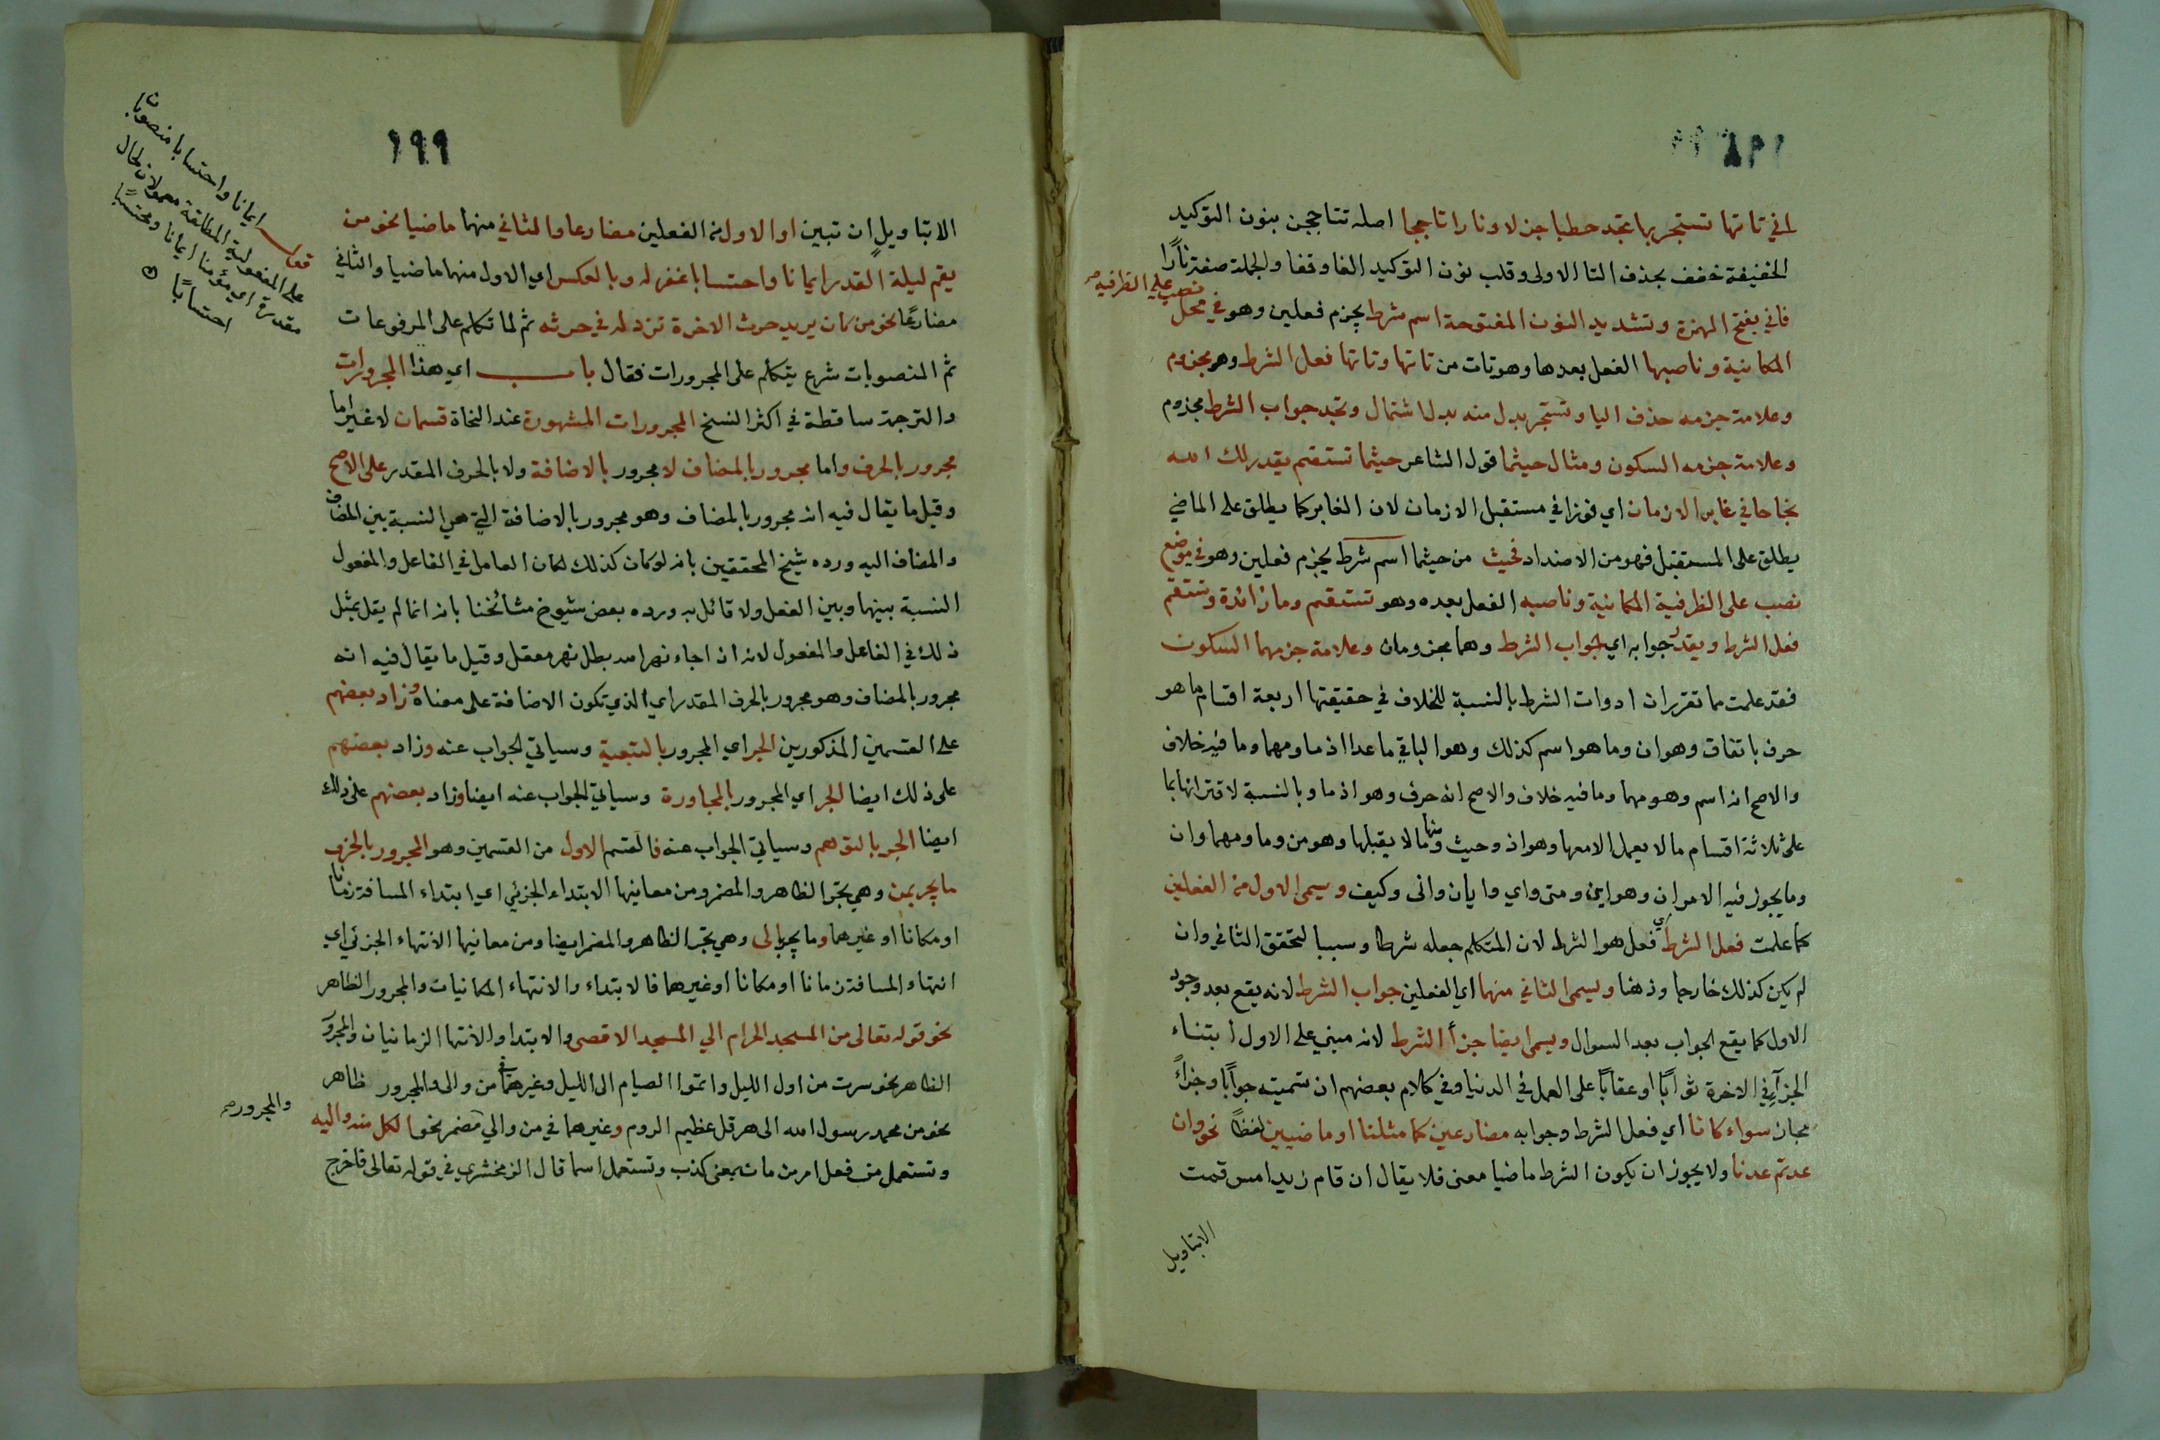 اني تاتها تستجر بها تجد حطبا جزلا ونارا تاججا اصله تتاججن بنون التوكيد
الخفيفة خفف بحذف التا الاولى وقلب نون التوكيد الفا وقفا والجملة صفة نارًا
فاني بفتح الهمزة وتشديد النون المفتوحة اسم شرط يجزم فعلين وهو في محل نصب على الظرفية
المكانية وناصبها الفعل بعدها وهو تات من تاتها وتاتها فعل الشرط وهو مجزوم
وعلامة جزمه حذف اليا وتستجر بدل منه بدل اشتمال وتجد جواب الشرط مجزوم
وعلامة جزمه السكون ومثال حيثما قول الشاعر حيثما تستقم يقدر لك الله
نجاحا في غابر الازمان اي فوزا في مستقبل الازمان لان الغابر كما يطلق على الماضي
يطلق على المستقبل فهو من الاضداد فحيث من حيثما اسم شرط يجزم فعلين وهو في موضع
نصب على الظرفية المكانية وناصبه الفعل بعده وهو تستقم وما زائدة وتستقم
فعل الشرط ويقدر جوابه اي جواب الشرط وهما مجزومان وعلامة جزمهما السكون
فقد علمت مما تقرر ان ادوات الشرط بالنسبة للخلاف في حقيقتها اربعة اقسام ما هو
حرف باتفاق وهو ان وما هو اسم كذلك وهو الباقي ما عدا اذما ومهما وما فيه خلاف
والاصح انه اسم وهو مهما وما فيه خلاف والاصح انه حرف وهو اذما وبالنسبة لاقترانها بما
على ثلاثة اقسام ما لا يعمل الا معها وهو اذ وحيث ومنها ما لا يقبلها وهو من وما ومهما وان
وما يجوز فيه الامران وهو اين ومتى واي وايان وانى وكيف ويسمى الاول من الفعلين
كما علمت فعل الشرط اي فعل هو الشرط لان المتكلم جعله شرطا وسببا لتحقق الثاني وان
لم يكن كذلك خارجا وذهنا ويسمى الثاني منهما اي الفعلين جواب الشرط لانه يقع بعد وجود
الاول كما يقع الجواب بعد السوال ويسمى ايضا جزأ الشرط لانه مبني على الاول ابتناء
الجزآء في الاخرة ثوابًا او عقابًا على العمل في الدنيا وفي كلام بعضهم ان تسميته جوابًا وجزاءً
مجاز سواء كانا اي فعل الشرط وجوابه مضارعين كما مثلنا او ماضيين لفظًا نحو وان
عدتم عدنا ولا يجوز ان يكون الشرط ماضيا معنى فلا يقال ان قام زيد امس قمت
الا بتاويل
١٩٩
الا بتاويل ان تبين او الاول من الفعلين مضارعا والثاني منهما ماضيا نحو من
يقم ليلة القدر ايمانا واحتسابا غفر له وبالعكس اي الاول منهما ماضيا والثاني
مضارعًا نحو من كان يريد حرث الاخرة نزد له في حرثه ثم لما تكلم على المرفوعات
ثم المنصوبات شرع يتكلم على المجرورات فقال باب اي هذا المجرورات
والترجمة ساقطة في اكثر النسخ المجرورات المشهورة عند النحاة قسمان لا غير اما
مجرور بالحرف واما مجرور بالمضاف لا مجرور بالاضافة ولا بالحرف المقدر على الاصح
وقيل ما يقال فيه انه مجرور بالمضاف وهو مجرور بالاضافة التي هي النسبة بين المضاف
والمضاف اليه ورده شيخ المحققين بانه لو كان كذلك لكان العامل في الفاعل والمفعول
النسبة بينهما وبين الفعل ولا قائل به ورده بعض شيوخ مشائخنا بانه انما لم يقل بمثل
ذلك في الفاعل والمفعول لانه اذا جاء نهر الله بطل نهر معقل وقيل ما يقال فيه انه
مجرور بالمضاف وهو مجرور بالحرف المقدر اي الذي تكون الاضافة على معناه وزاد بعضهم
على القسمين المذكورين الجر اي المجرور بالتبعية وسياتي الجواب عنه وزاد بعضهم
على ذلك ايضا الجر اي المجرور بالمجاورة وسياتي الجواب عنه ايضا وزاد بعضهم على ذلك
ايضا الجر بالتوهم وسياتي الجواب عنه فالقسم الاول من القسمين وهو المجرور بالحرف
ما يجر بمن وهي تجر الظاهر والمضمر ومن معانيها الابتداء الجزئي اي ابتداء المسافة زمانا
او مكانا او غيرهما وما يجر بالى وهي تجر الظاهر والمضمر ايضا ومن معانيها الانتهاء الجزئي اي
انتهاء المسافة زمانا او مكانا او غيرهما فالابتداء والانتهاء المكانيات والمجرور الظاهر
نحو قوله تعالى من المسجد الحرام الي المسجد الاقصى والابتدا والانتها الزمانيان والمجرور
الظاهر نحو سرت من اول الليل واتموا الصيام الى الليل وغيرهما في من والى والمجرور ظاهر
نحو من محمد رسول الله الى هرقل عظيم الروم وغيرهما في من والي مضمر نحو الكل منه واليه
وتستعمل من فعل امر من مان بمعنى كذب وتستعمل اسما قال الزمخشري في قوله تعالى فاخرج
قوله ايمانا واحتسابا منصوبان
على المفعولية المطلقة معمولان لحال
مقدرة اي مؤمنا ايمانا ومحتسبًا
احتسابًا
والمجرور